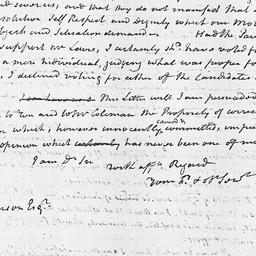 and that they do not manifest that
Self Respect and Dignity which our
objects and Situation demanded Had the
support Mr Laws, I certainly shd. have voted
a mere Individual, judging what was proper
I declined voting for either of the Candidates
This Letter will I am persuaded
to You and to Mr Coleman the Propriety of
in which, however innocently committed,
opinion which has never been one of
I am Dr Sir
with affte. Regard
Your
Esqr.